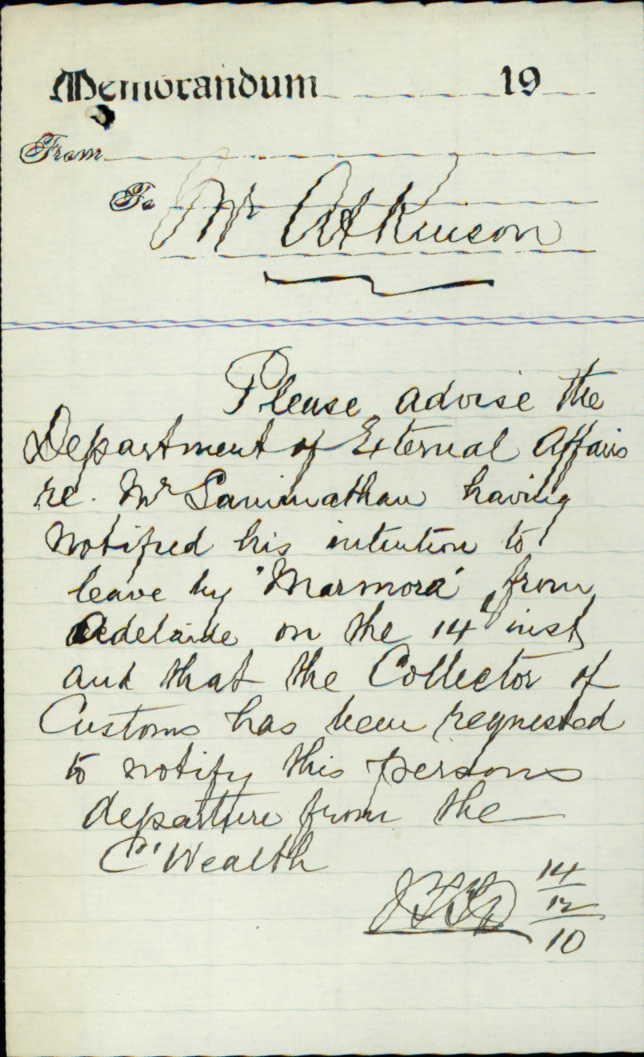 Memorandum 19
From
To Mr Atkinson
Please advise the
Department of External Affairs
re. Mr Saminathan having
notified his intention to
leave by "Marmora" from
Adelaide on the 14th inst
and that the Collector of
Customs has been requested
to notify this persons
departure from the
C'Wealth
14
12
10